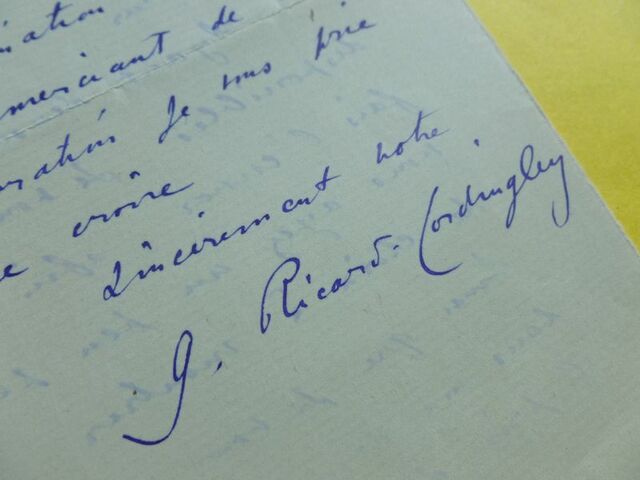 mation
merciant de
ration je vous prie
e croire
sincèrement votre
G. Ricard-Cordingley